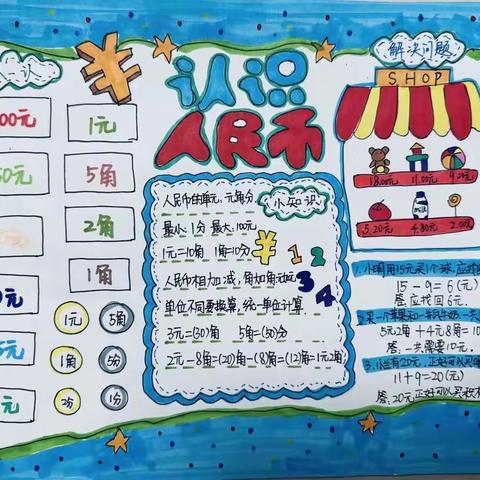 认识
人民币
00元
0元
元
元
元
1元
5角
2角
1角
1元
5角
1角
5分
2分
1分
小知识
人民币的单元,元角分
最小:1分 最大:100元
1元=10角 1角=10分
人民币相加减,角加角元加元
单位不同要换算,统一单位计算
3元=(30)角 5角=(50)分
2元-8角=(20)角-(8)角=(12)角=1元2角
¥ 1 2
3
4
解决问题
SHOP
18.00元 11.00元 9.00元
5.20元 4.80元 2.00元
1.小明用15元买1个球,应找
15-9=6(元)
答:应找回6元.
2.买一个苹果和一瓶牛奶一共
5元2角+4元8角=10
答:一共需要10元.
3.小兰有20元,正好可以买
11+9=20(元)
答:20元正好可以买积木